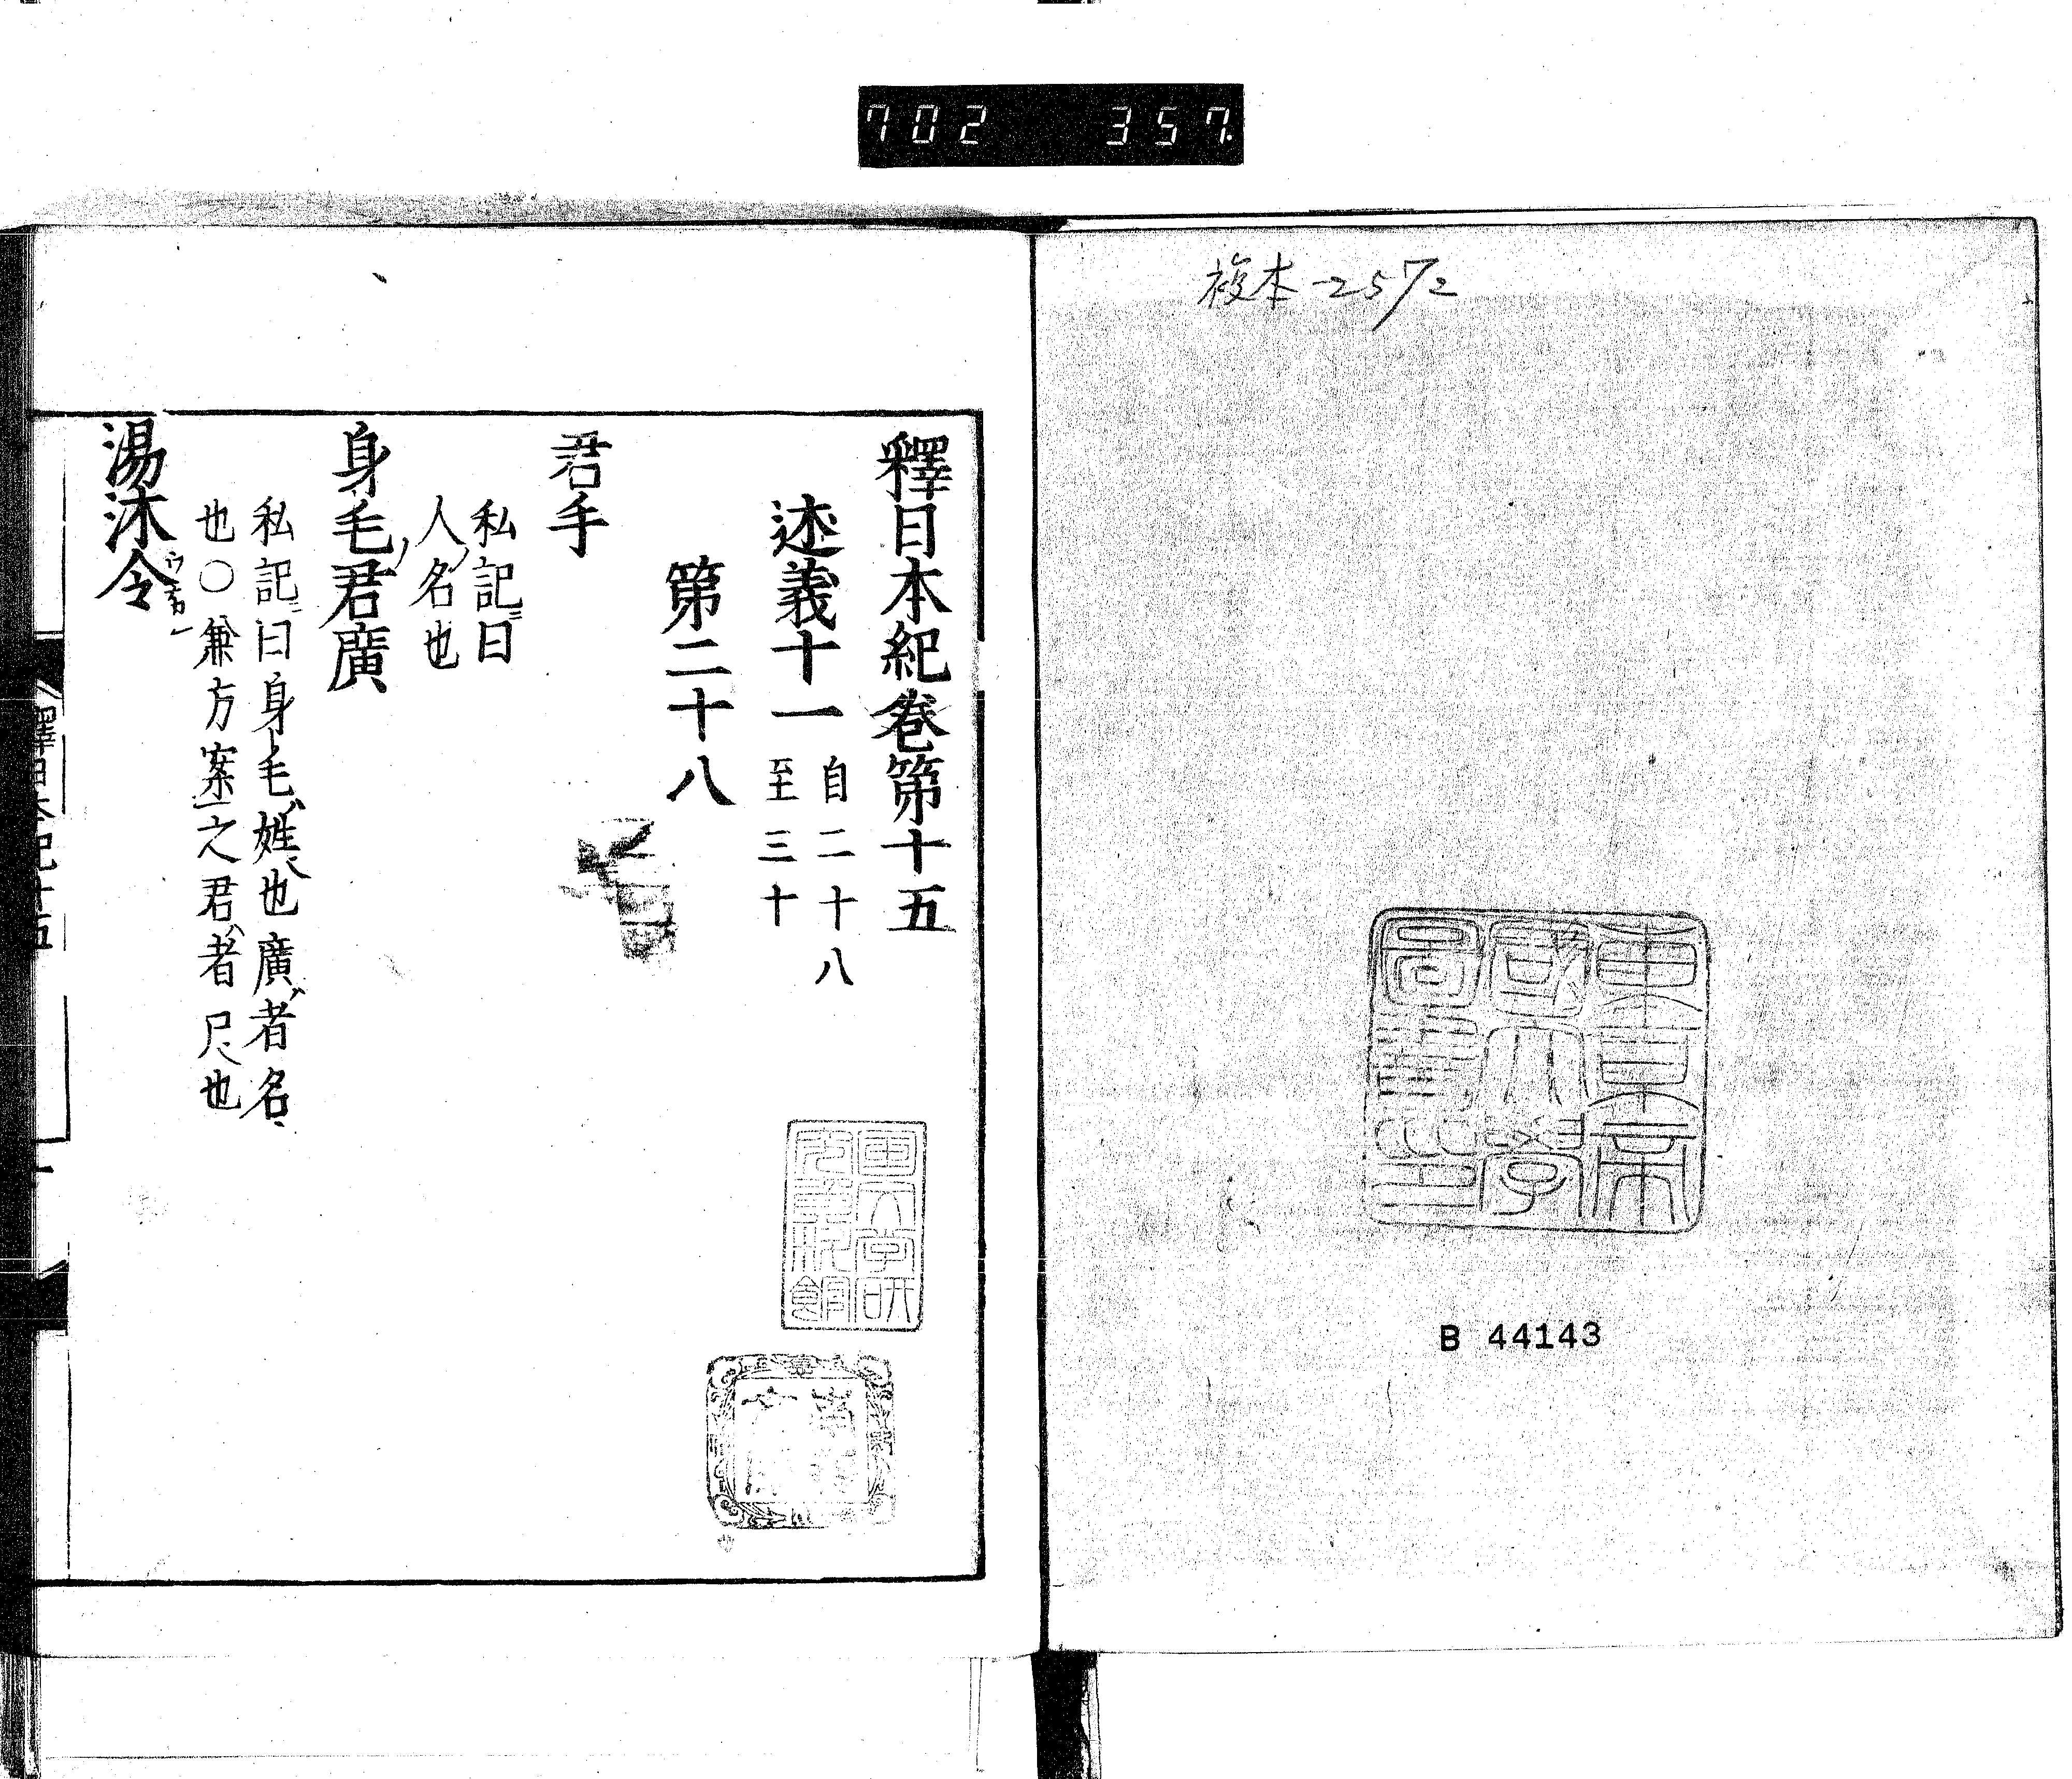 702 357
複本-2572
東京帝
國大學
圖書印
B 44143
釋日本紀卷第十五
述義十一
自二十八
至三十
第二十八
君手
私記曰
人名也
身毛君廣
私記曰身毛姓也廣者名
也〇兼方案之君者尸也
湯沐令
釋日本紀十五
一
国文学研
究資料館